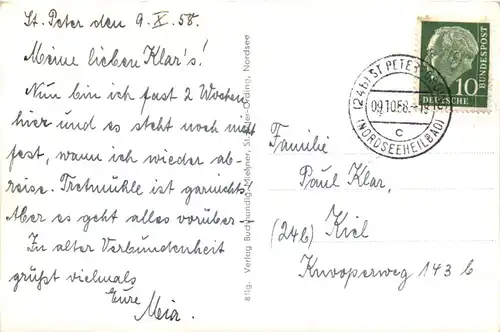 St. Peter den 9. X. 58.
Meine lieben Klar's!
Nun bin ich fast 2 Wochen
hier und es steht noch nicht
fest, wann ich wieder ab-
reise. Tretmühle ist garnichts!
Aber es geht alles vorüber -
In alter Verbundenheit
grüßt vielmals
Eure
Meia.
81g. Verlag Buchhandlg. St. Peter-Ording, Nordsee
(24b) ST PETER
09.10.58.
c
(NORDSEEHEILBAD)
DEUTSCHE BUNDESPOST
10
Familie
Paul Klar,
(24b) Kiel
Knooperweg 143 b